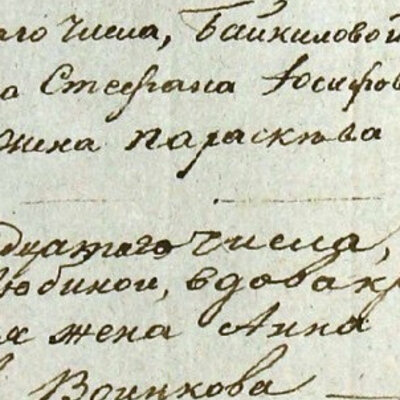 аго числа, Байкиловой
а Стефана Іосифов
жена Параскѣва
дцатого числа,
любиной, вдова кр
ая жена Анна
Воинкова